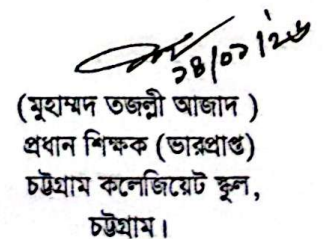 ২৪/০১/২৬
(মুহাম্মদ তজল্লী আজাদ )
প্রধান শিক্ষক (ভারপ্রাপ্ত)
চট্টগ্রাম কলেজিয়েট স্কুল,
চট্টগ্রাম।